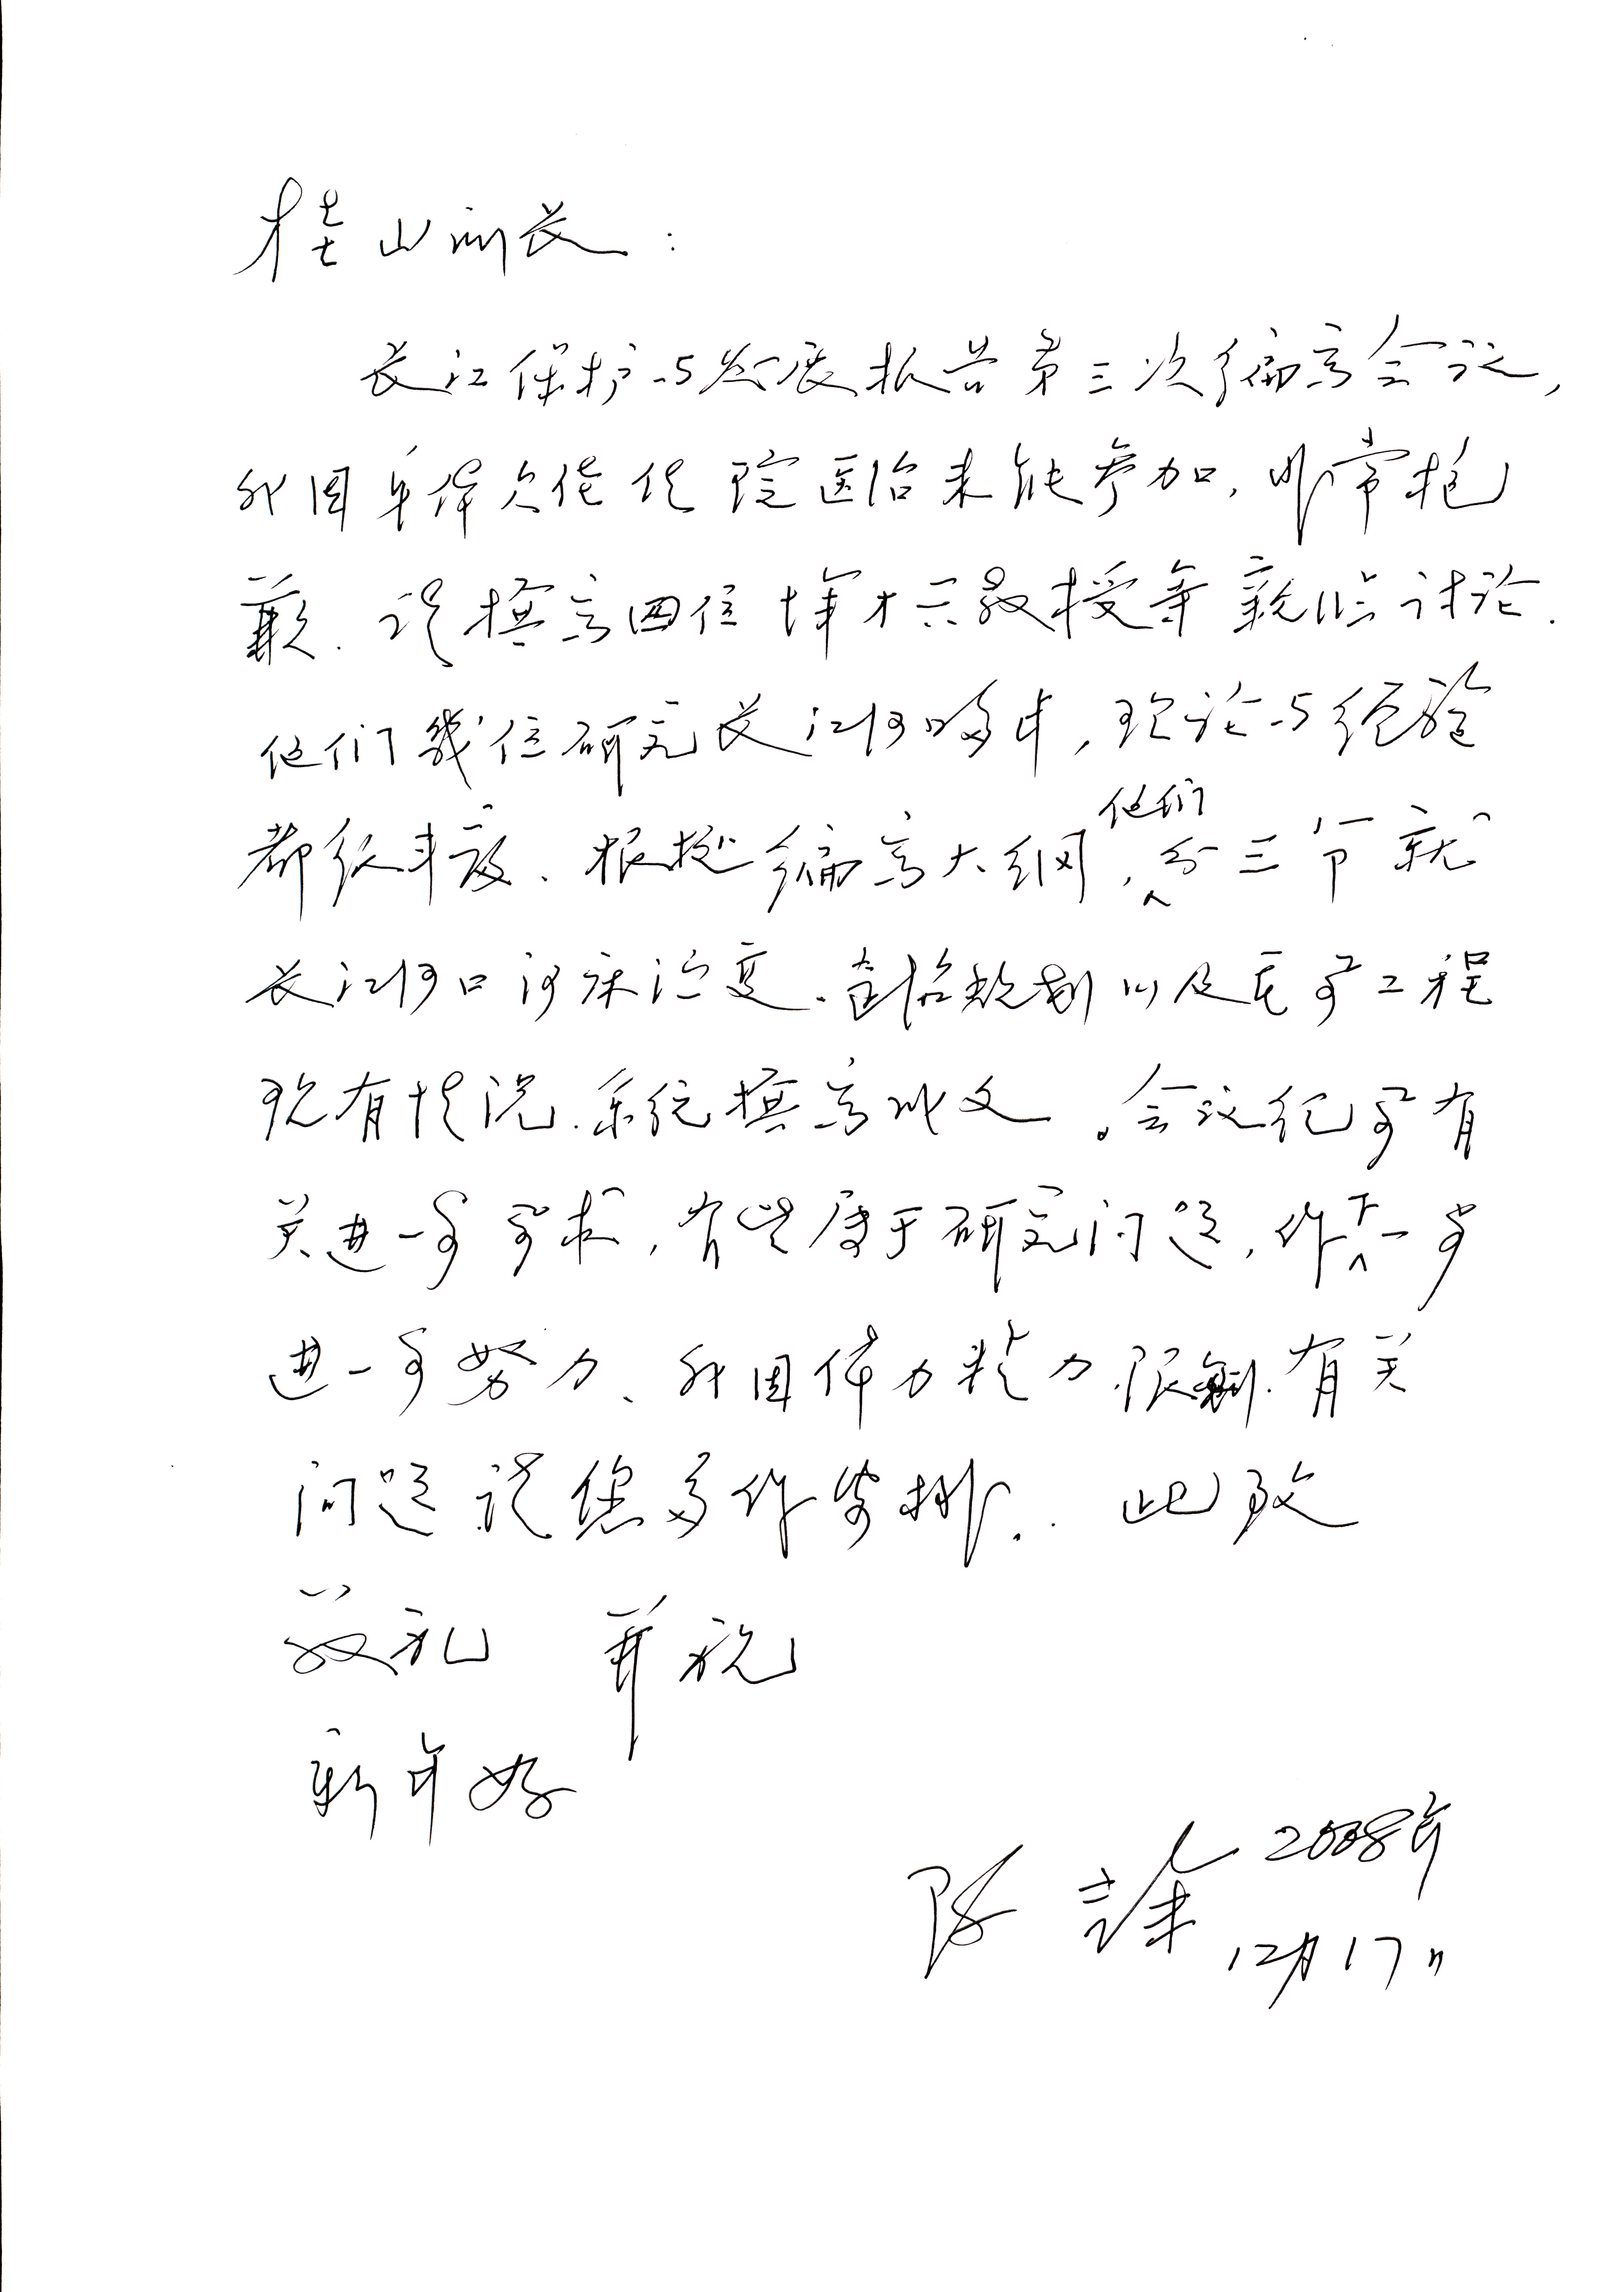 桂山所长：
长江保护与发展报告第三次编写会议，
我因年体欠佳住院医治未能参加，非常抱
歉．请撰写四位恽才兴教授等亲临讨论．
他们几位研究长江河口多年，理论与经验
都很丰富、根据编写大纲，他们分三节就
长江河口河床演变、整治规划以及重要工程
现有情况、系统撰写成文。会议纪要有
关进一步要求，有些属于研究问题，作下一步
进一步努力、我因体力精力限制．有关
问题请您多作安排．此致
敬礼 并祝
新年好
陈 2008年
12月17日